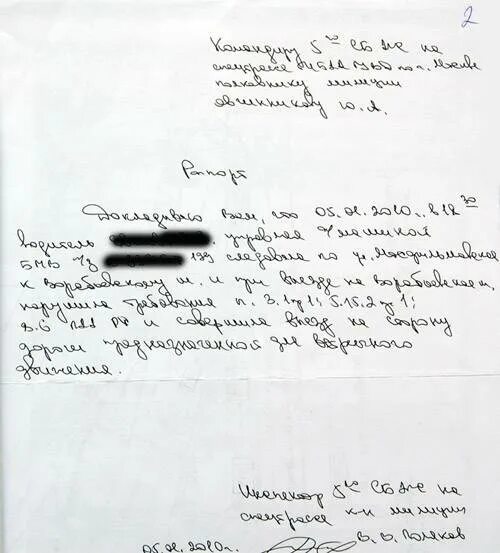 2
Командиру 5го СБ ДПС на
спецтрассе ГИБДД ГУВД по г. Москве
полковнику милиции
Овчинникову Ю. А.
Рапорт
Докладываю Вам, что 05.01.2010г. в 12 30
водитель управляя а/машиной
БМВ 199 следовала по ул. Мосфильмовская
к Воробьевскому ш. и при выезде на Воробьевское ш.
нарушила требования п. 3.1 пр 1; 5.15.2 пр 1;
8.6 ПДД РФ и совершила выезд на сторону
дороги предназначенной для встречного
движения.
Инспектор 5го СБ ДПС на
спецтрассе к-н милиции
05.01.2010г. В. О. Поляков